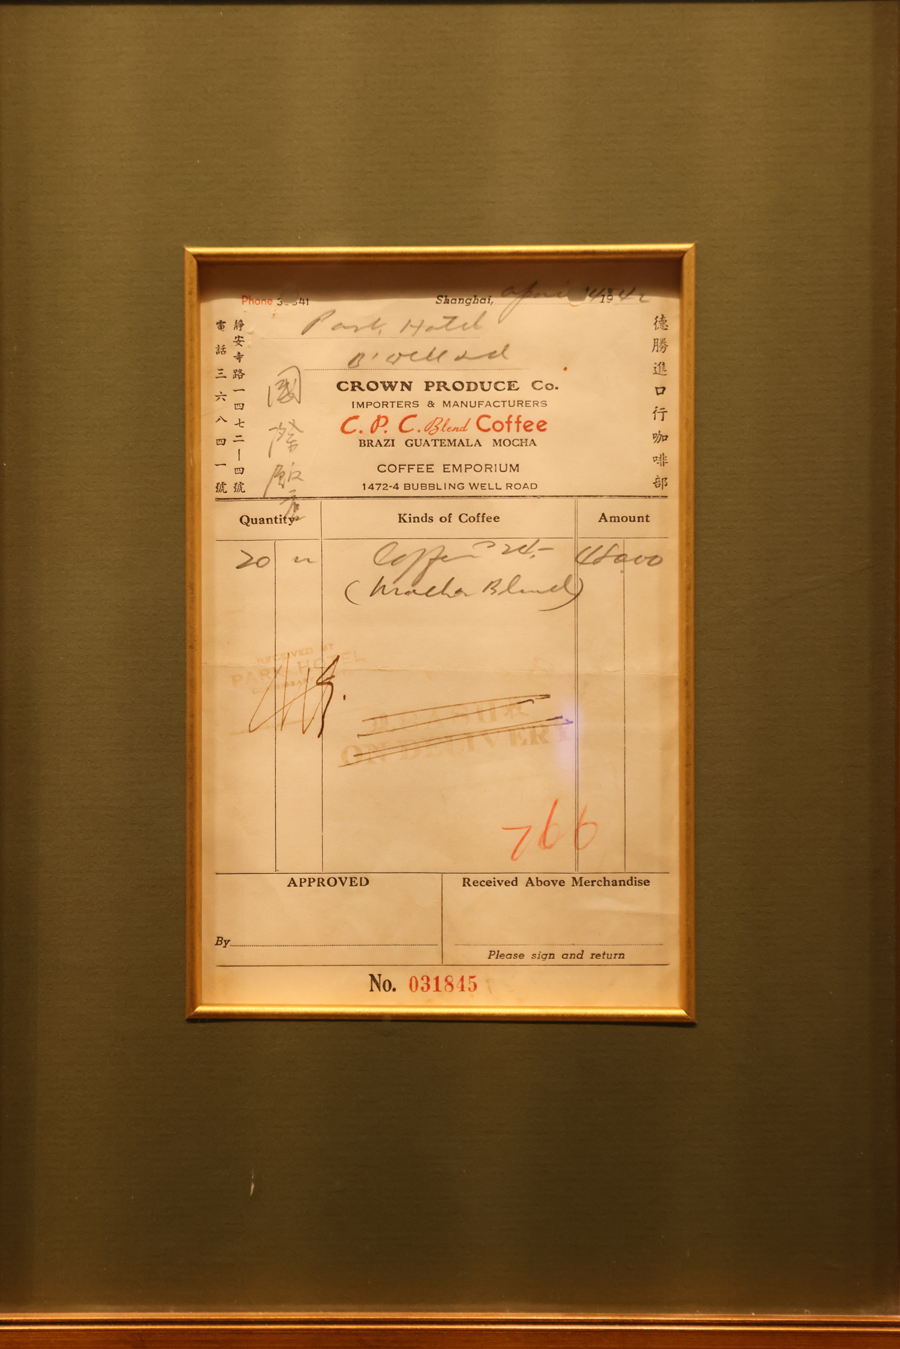 Phone
Shanghai, April 14 1942
Park Hotel
電話三六八四一號
靜安寺路一四七二—四號
國際飯店
德勝進口行咖啡部
CROWN PRODUCE Co.
IMPORTERS & MANUFACTURERS
C. P. C. Blend Coffee
BRAZI GUATEMALA MOCHA
COFFEE EMPORIUM
1472-4 BUBBLING WELL ROAD
Quantity Kinds of Coffee Amount
20 Coffee 24.- 48000
(Mocha Blend)
RECEIVED BY
PARK HOTEL
ON DELIVERY
766
APPROVED Received Above Merchandise
By
Please sign and return
No. 031845